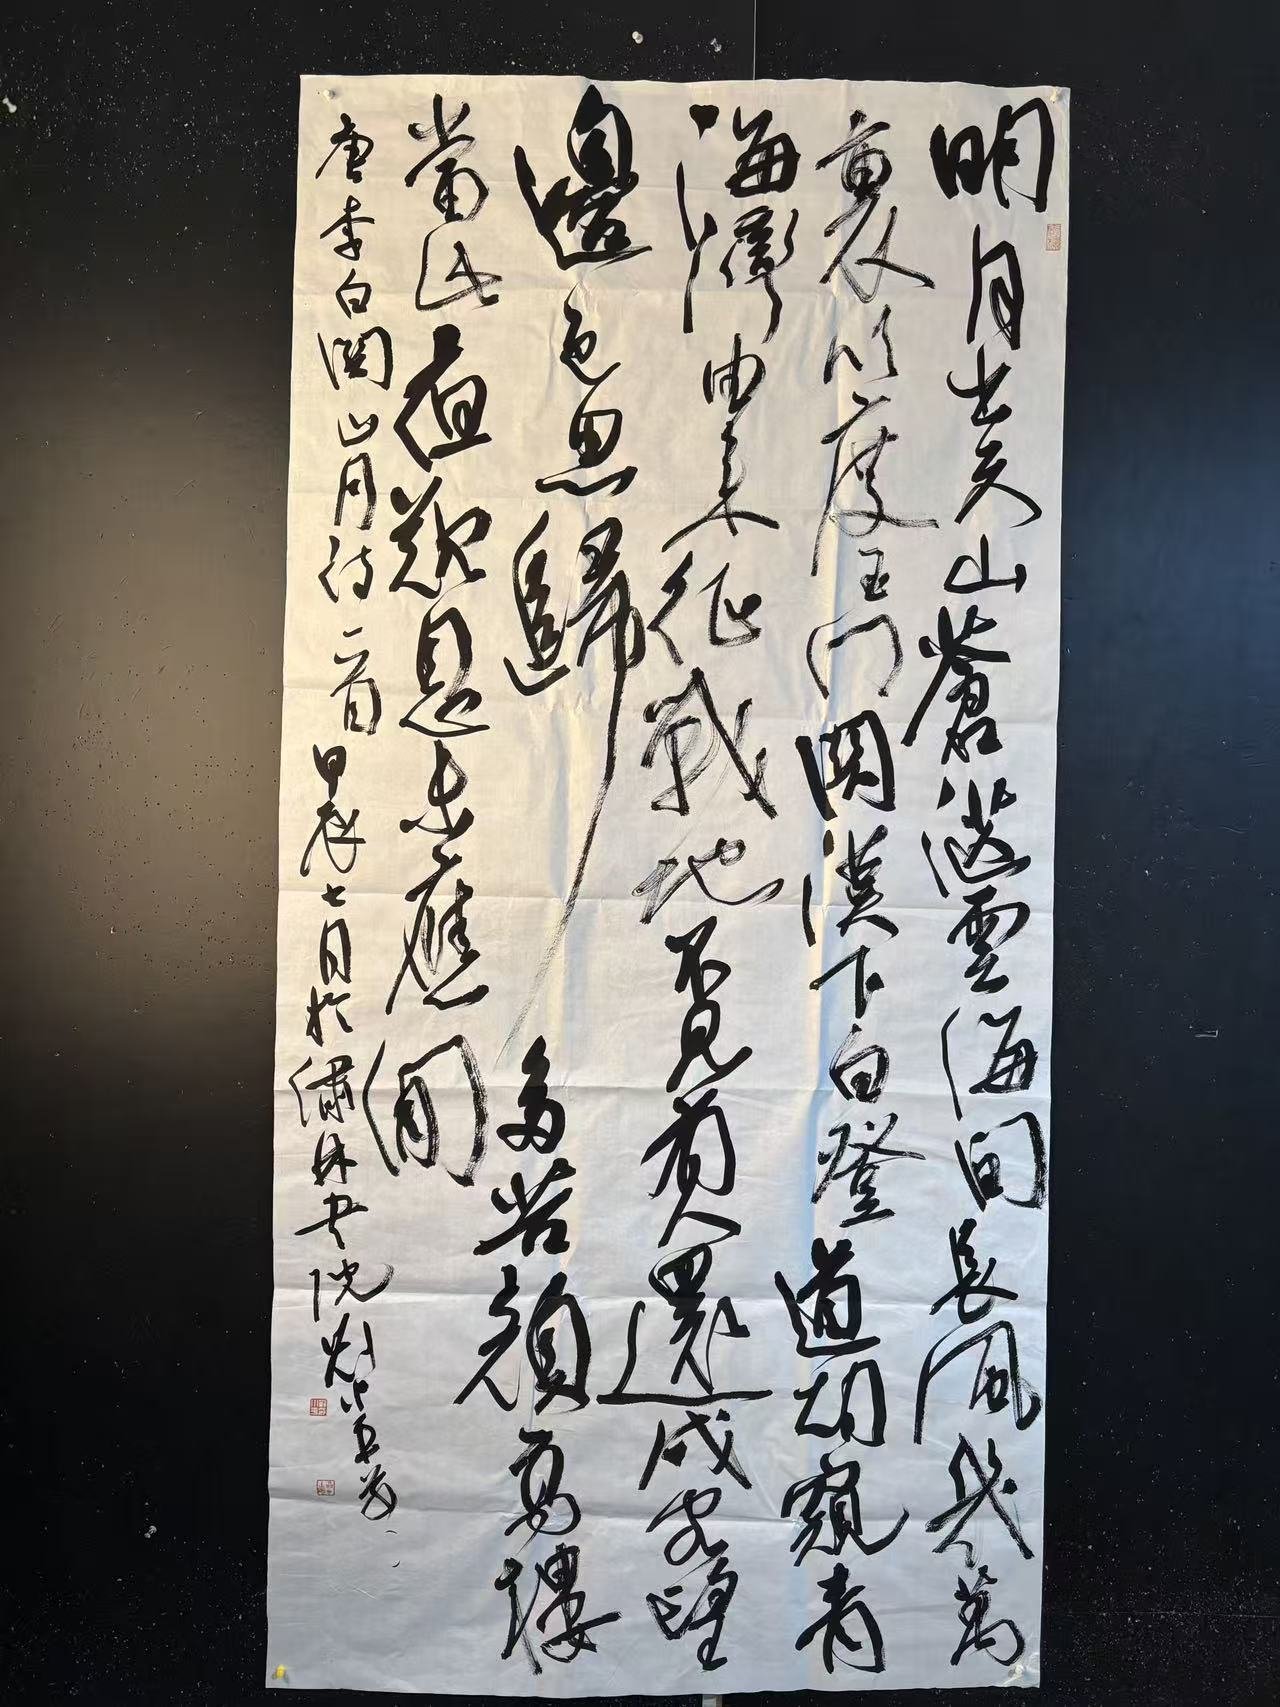 明月出天山蒼茫雲海間長風幾萬
裏吹度玉門關漢下白登道胡窺青
海灣由來征戰地不見有人還戍客望
邊色思歸多苦顏高樓
當此夜歎息未應閒
唐李白関山月詩一首甲辰七月於瀟林書院